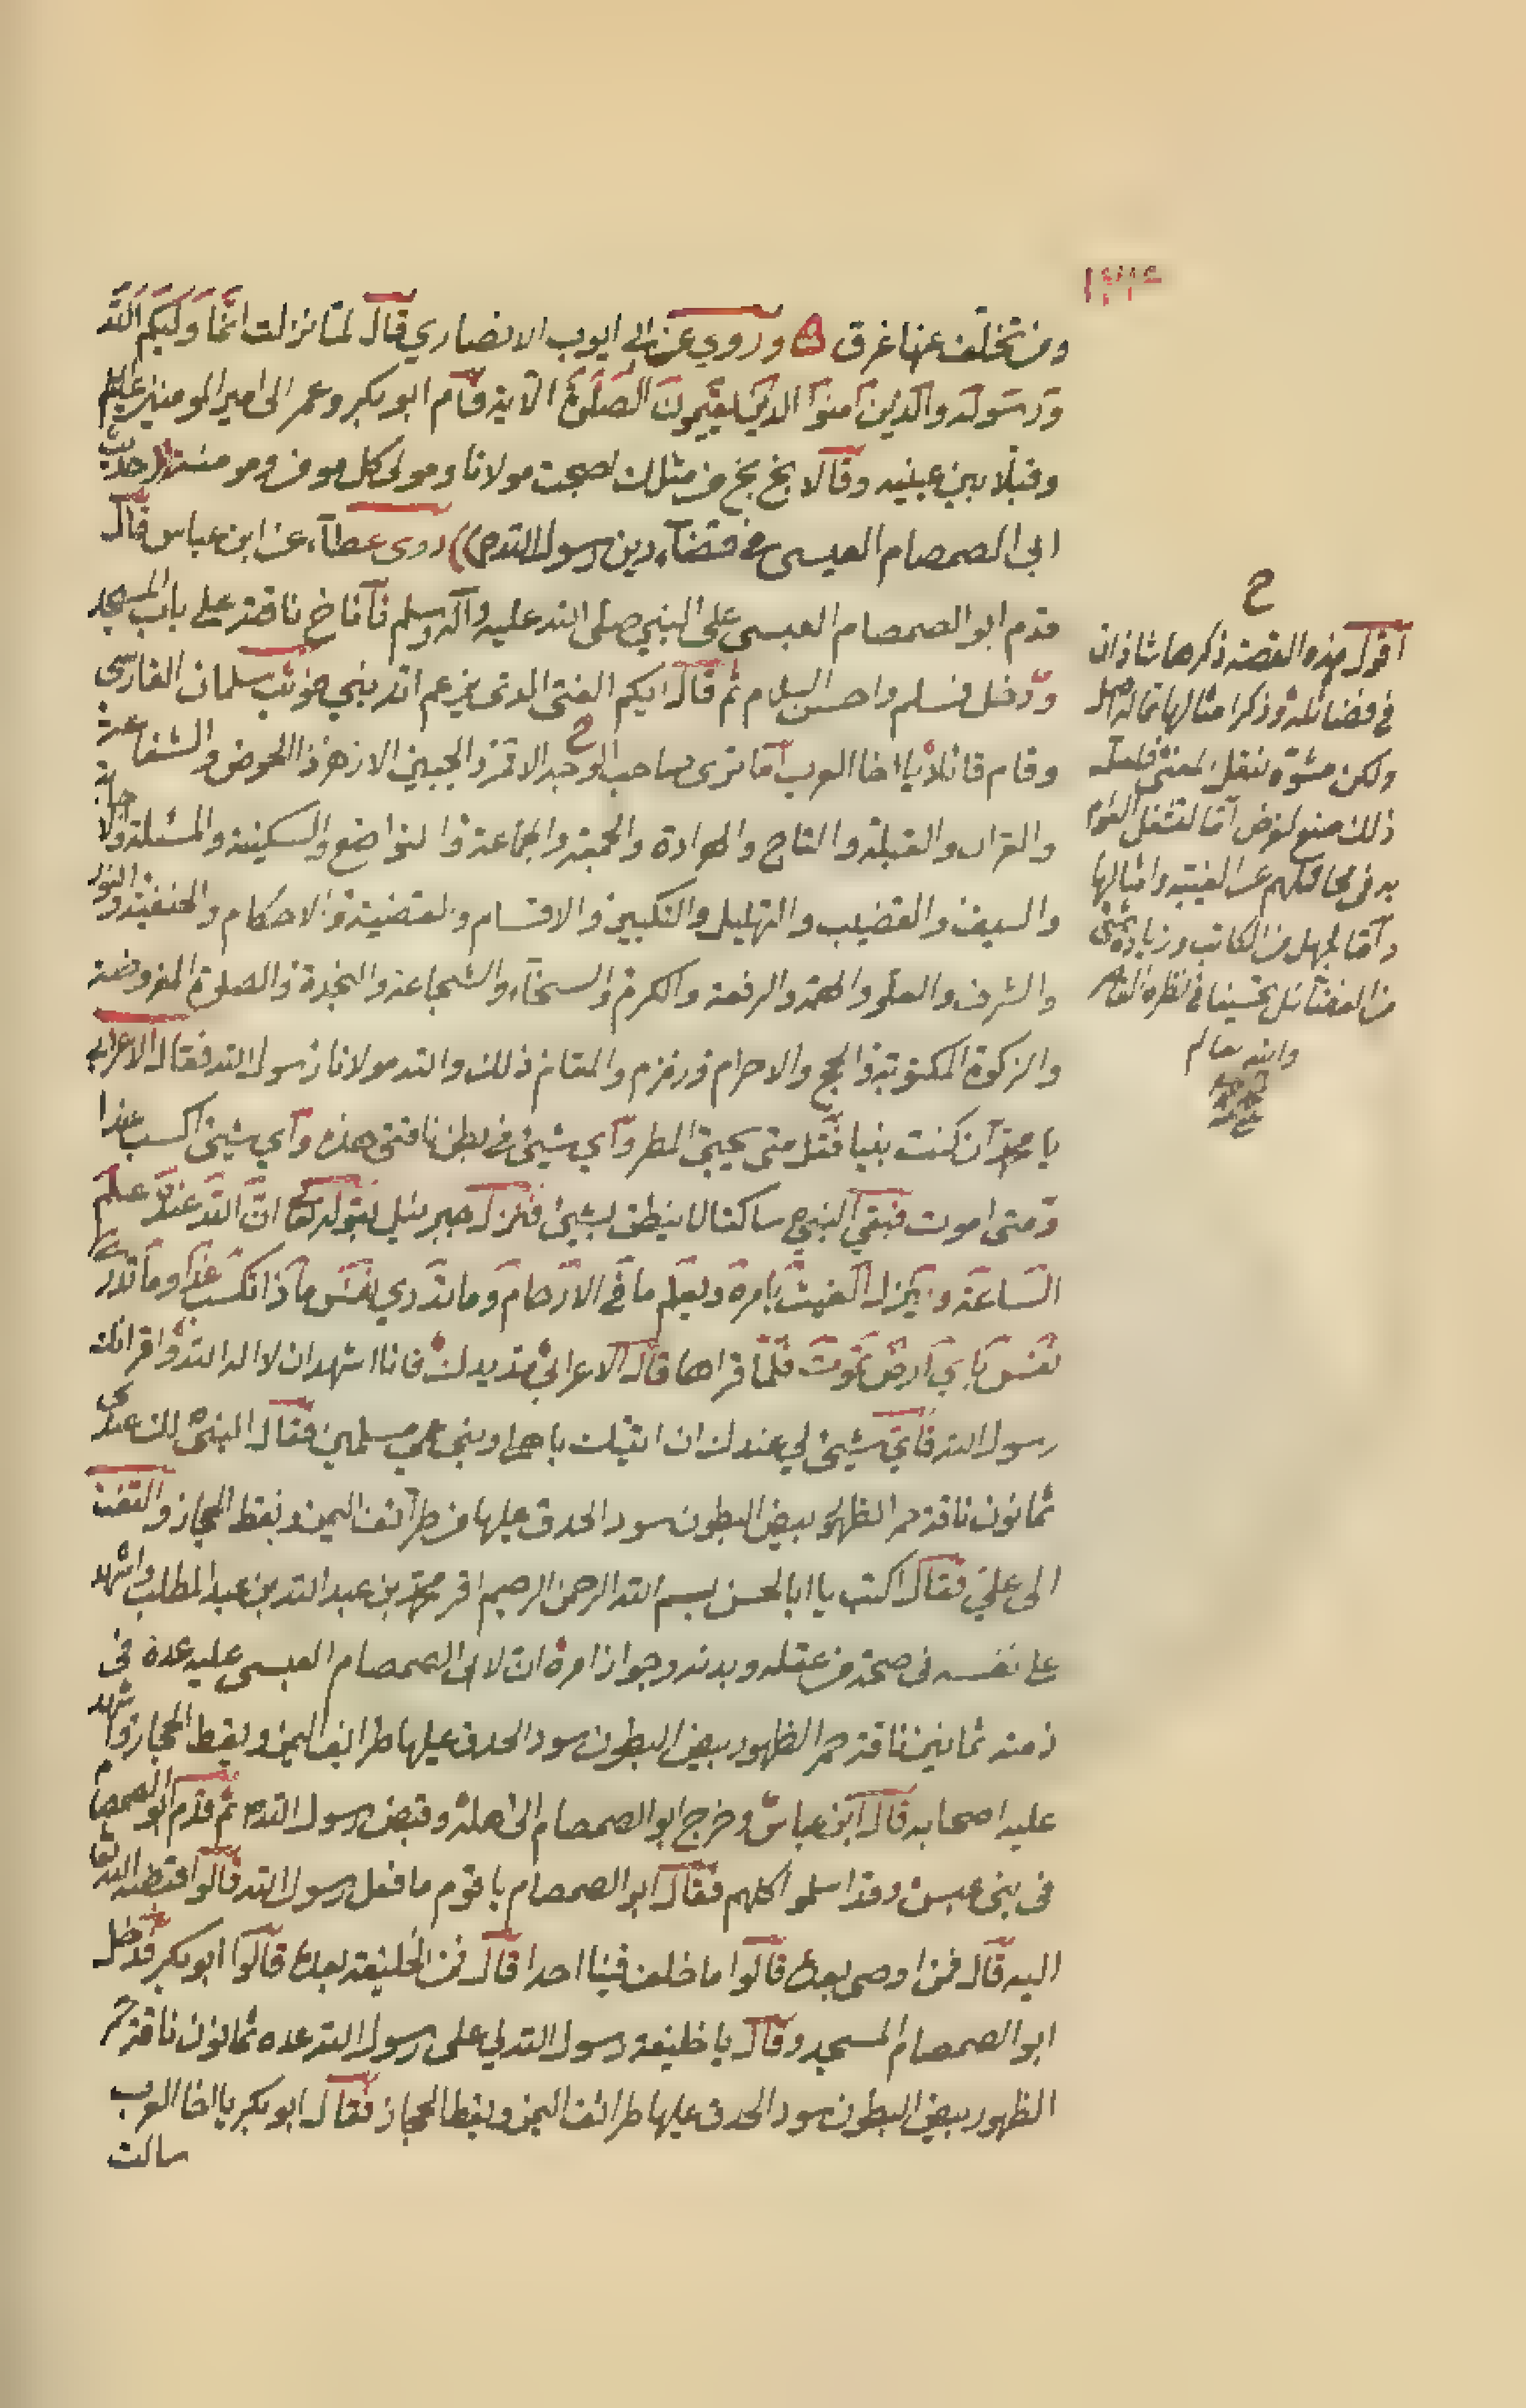 ومن تخلف عنها غرق ۞ وروي عن ابي ايوب الانصاري قال لما نزلت انما وليكم الله
ورسوله والذين آمنوا الذين يقيمون الصلوة الآية قام ابو بكر وعمر الى امير المومنين عليه السلم
وقبلا بين عينيه وقالا بخ بخ من مثلك اصبحت مولانا ومولى كل مومن ومومنة (حديث
ابى الصمصام العبسى فى قضاء دين رسول الله ص)) روى عطاء عن ابن عباس قال
قدم ابو الصمصام العبسى على النبي صلى الله عليه وآله وسلم فاناخ ناقته على باب المسجد
ودخل فسلم واحسن السلام ثم قال ايكم الفتى الذى يزعم انه نبي فوثب سلمان الفارسى
وقام قائلا يا اخا العرب اما ترى صاحب الوجه الاقمر والجبين الازهر والحوض والشفاعة
والقران والقبلة والتاج والهرادة والجمعة والجماعة والتواضع والسكينة والمسئلة والاجابة
والسيف والقضيب والتهليل والتكبير والاقسام والقضية والاحكام والحنفية والنور
والشرف والعلو والهمة والرفعة والكرم والسخاء والشجاعة والنجدة والصلوة المفروضة
والزكوة المكتوبة والحج والاحرام وزمزم والمقام ذلك والله مولانا رسول الله فقال الاعرابى
يا محمد ان كنت نبيا فقل متى يجيئ المطر وأي شيئ في بطن ناقتى هذه وأي شيئ اكسب غدا
ومتى اموت فبقي النبي ص ساكتا لا ينطق بشيئ فنزل جبرئيل بقوله تعالى ان الله عنده علم
الساعة وينزل الغيث بامره ويعلم ما في الارحام وما تدري نفس ماذا تكسب غدا وما تدرى
نفس باي ارض تموت فلما قراها قال الاعرابي مد يدك فانا اشهد ان لا اله الا الله واقر انك
رسول الله فاي شيئ لي عندك ان اتيتك باهلى وبنى عمي مسلمين فقال النبى لك عندى
ثمانون ناقة حمر الظهور بيض البطون سود الحدق عليها من طرائف اليمن ونقط الحجاز والتفت
الى علي فقال اكتب يا ابا الحسن بسم الله الرحمن الرحيم اقر محمد بن عبد الله بن عبد المطلب واشهد
على نفسه فى صحة من عقله وبدنه وجواز امره ان لابى الصمصام العبسى عليه عدة فى
ذمته ثمانين ناقة حمر الظهور بيض البطون سود الحدق عليها طرائف اليمن ونقط الحجاز واشهد
عليه اصحابه قال ابن عباس وخرج ابو الصمصام الى اهله وقبض رسول الله ص ثم قدم ابو الصمصام
فى بنى عبس وقد اسلموا كلهم فقال ابو الصمصام يا قوم ما فعل رسول الله قالوا قبضه الله تعا
اليه قال فمن اوصى بعده قالوا ما خلف فينا احدا قال فمن الخليفة بعده قالوا ابو بكر فدخل
ابو الصمصام المسجد وقال يا خليفة رسول الله لي على رسول الله عده ثمانون ناقة حمر
الظهور بيض البطون سود الحدق عليها طرائف اليمن ونقط الحجاز فقال ابو بكر يا اخا العرب
سالت
ح
اقول هذه القصة ذكرها شاذان
في فضائله وذكر امثالها مما له اصل
ولكن مشوه بنقل لمعنى فلعله
ذلك صنع لغرض اما لتشغل العوام
به فى محافلهم عن الغيبة وامثالها
واما لجهل من الكاتب وزيادة شئ
من الفضائل تحسينا في نظره القاصر
والله عالم